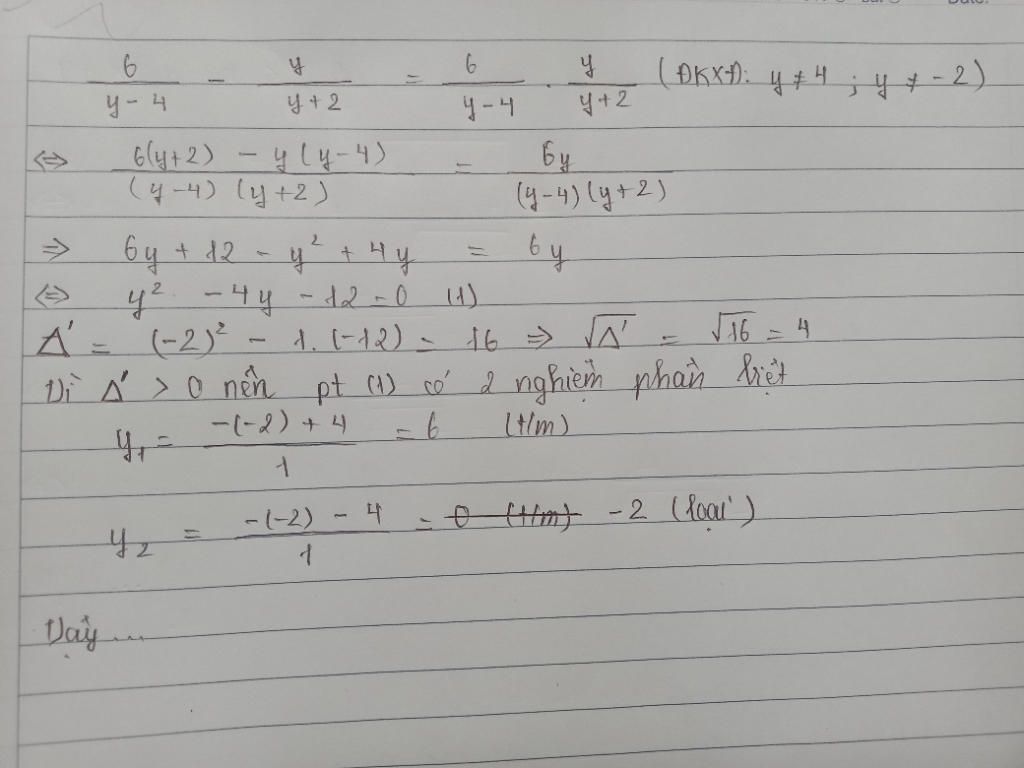 6/(y-4) - y/(y+2) = 6/(y-4) . y/(y+2) (ĐKXĐ: y ≠ 4 ; y ≠ -2)
⇔ (6(y+2) - y(y-4))/((y-4)(y+2)) = 6y/((y-4)(y+2))
⇒ 6y + 12 - y² + 4y = 6y
⇔ y² - 4y - 12 = 0 (1)
Δ' = (-2)² - 1.(-12) = 16 ⇒ √Δ' = √16 = 4
Vì Δ' > 0 nên pt (1) có 2 nghiệm phân biệt
y₁ = (-(-2) + 4)/1 = 6 (t/m)
y₂ = (-(-2) - 4)/1 = 0 (t/m) -2 (loại)
Vậy ...